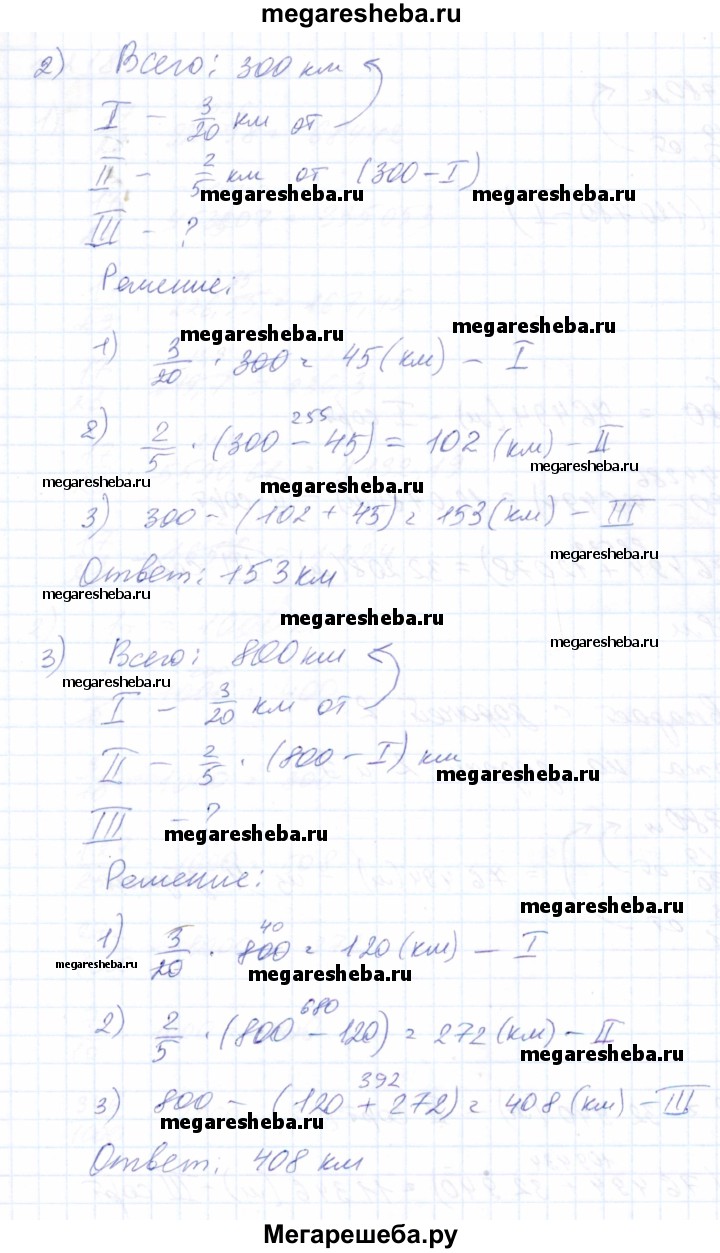 megaresheba.ru
2) Всего: 300 км
I – 3/20 км от
II – 2/5 км от (300 – I)
megaresheba.ru megaresheba.ru
III – ?
Решение:
megaresheba.ru megaresheba.ru
1) 3/20 · 300 = 45 (км) – I
255
2) 2/5 · (300 – 45) = 102 (км) – II
megaresheba.ru
megaresheba.ru megaresheba.ru
3) 300 – (102 + 45) = 153 (км) – III
megaresheba.ru
Ответ: 153 км
megaresheba.ru
megaresheba.ru
megaresheba.ru
3) Всего: 800 км
megaresheba.ru
I – 3/20 км от
II – 2/5 · (800 – I) км
megaresheba.ru
III – ?
megaresheba.ru
Решение:
megaresheba.ru
40
1) 3/20 · 800 = 120 (км) – I
megaresheba.ru megaresheba.ru
680
2) 2/5 · (800 – 120) = 272 (км) – II
megaresheba.ru
392
3) 800 – (120 + 272) = 408 (км) – III
megaresheba.ru
Ответ: 408 км
Мегарешеба.ру